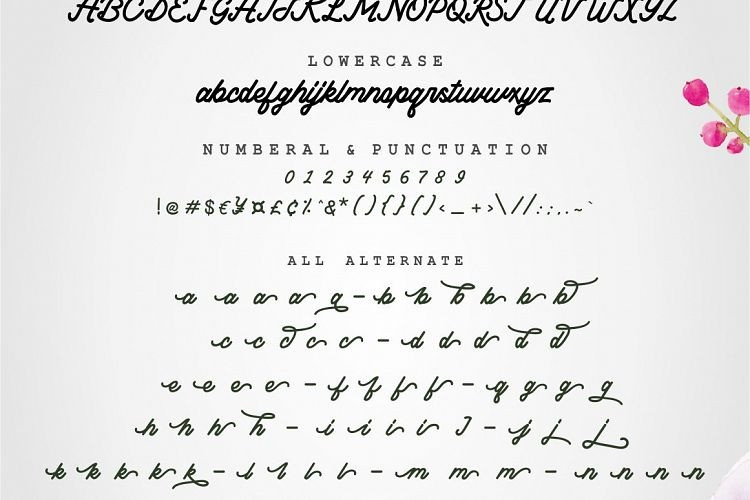 ABCDEFGHIJKLMNOPQRSTUVWXYZ
LOWERCASE
abcdefghijklmnopqrstuvwxyz
NUMBERAL & PUNCTUATION
0 1 2 3 4 5 6 7 8 9
!@#$€¥¤£¢%^&*(){}()‹_+›\//:;,.~`
ALL ALTERNATE
a a a a a - b b b b b b
c c c c c - d d d d d
e e e e - f f f f - g g g g g
h h h h - i i i i I - j j j
k k k k k - l l l l - m m m - n n n n n